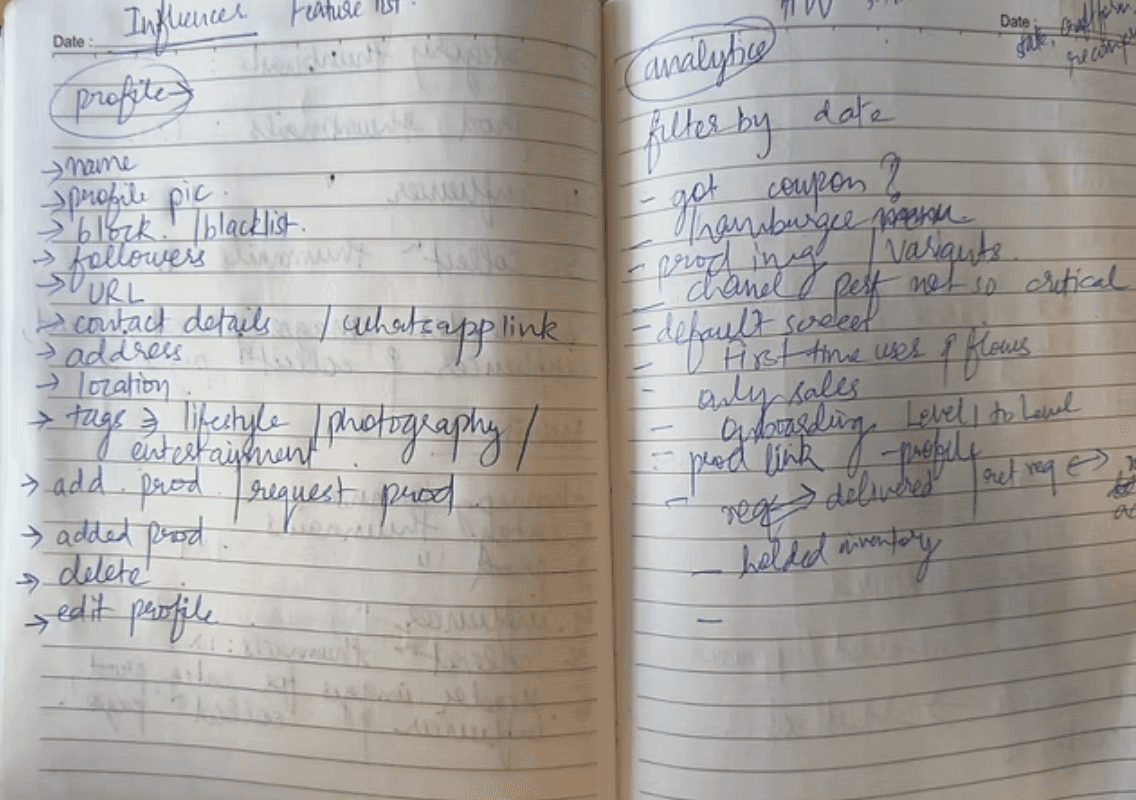 Influencer Feature list.
Date :
profile →
→ name
→ profile pic.
→ block. / blacklist.
→ followers
→ URL
→ contact details / whatsapp link
→ address
→ location
→ tags → lifestyle / photography /
entertainment
→ add prod / request prod
→ added prod.
→ delete
→ edit profile
Date :
analytics
filter by date
- got coupon ?
- hamburger
- prod img / variants.
- chanel perf not so critical
- default screen
- first time user flows
- only sales
- onboarding Level 1 to Level
- prod link - profile
- req → delivered / ret req ↔
- holded inventory
-